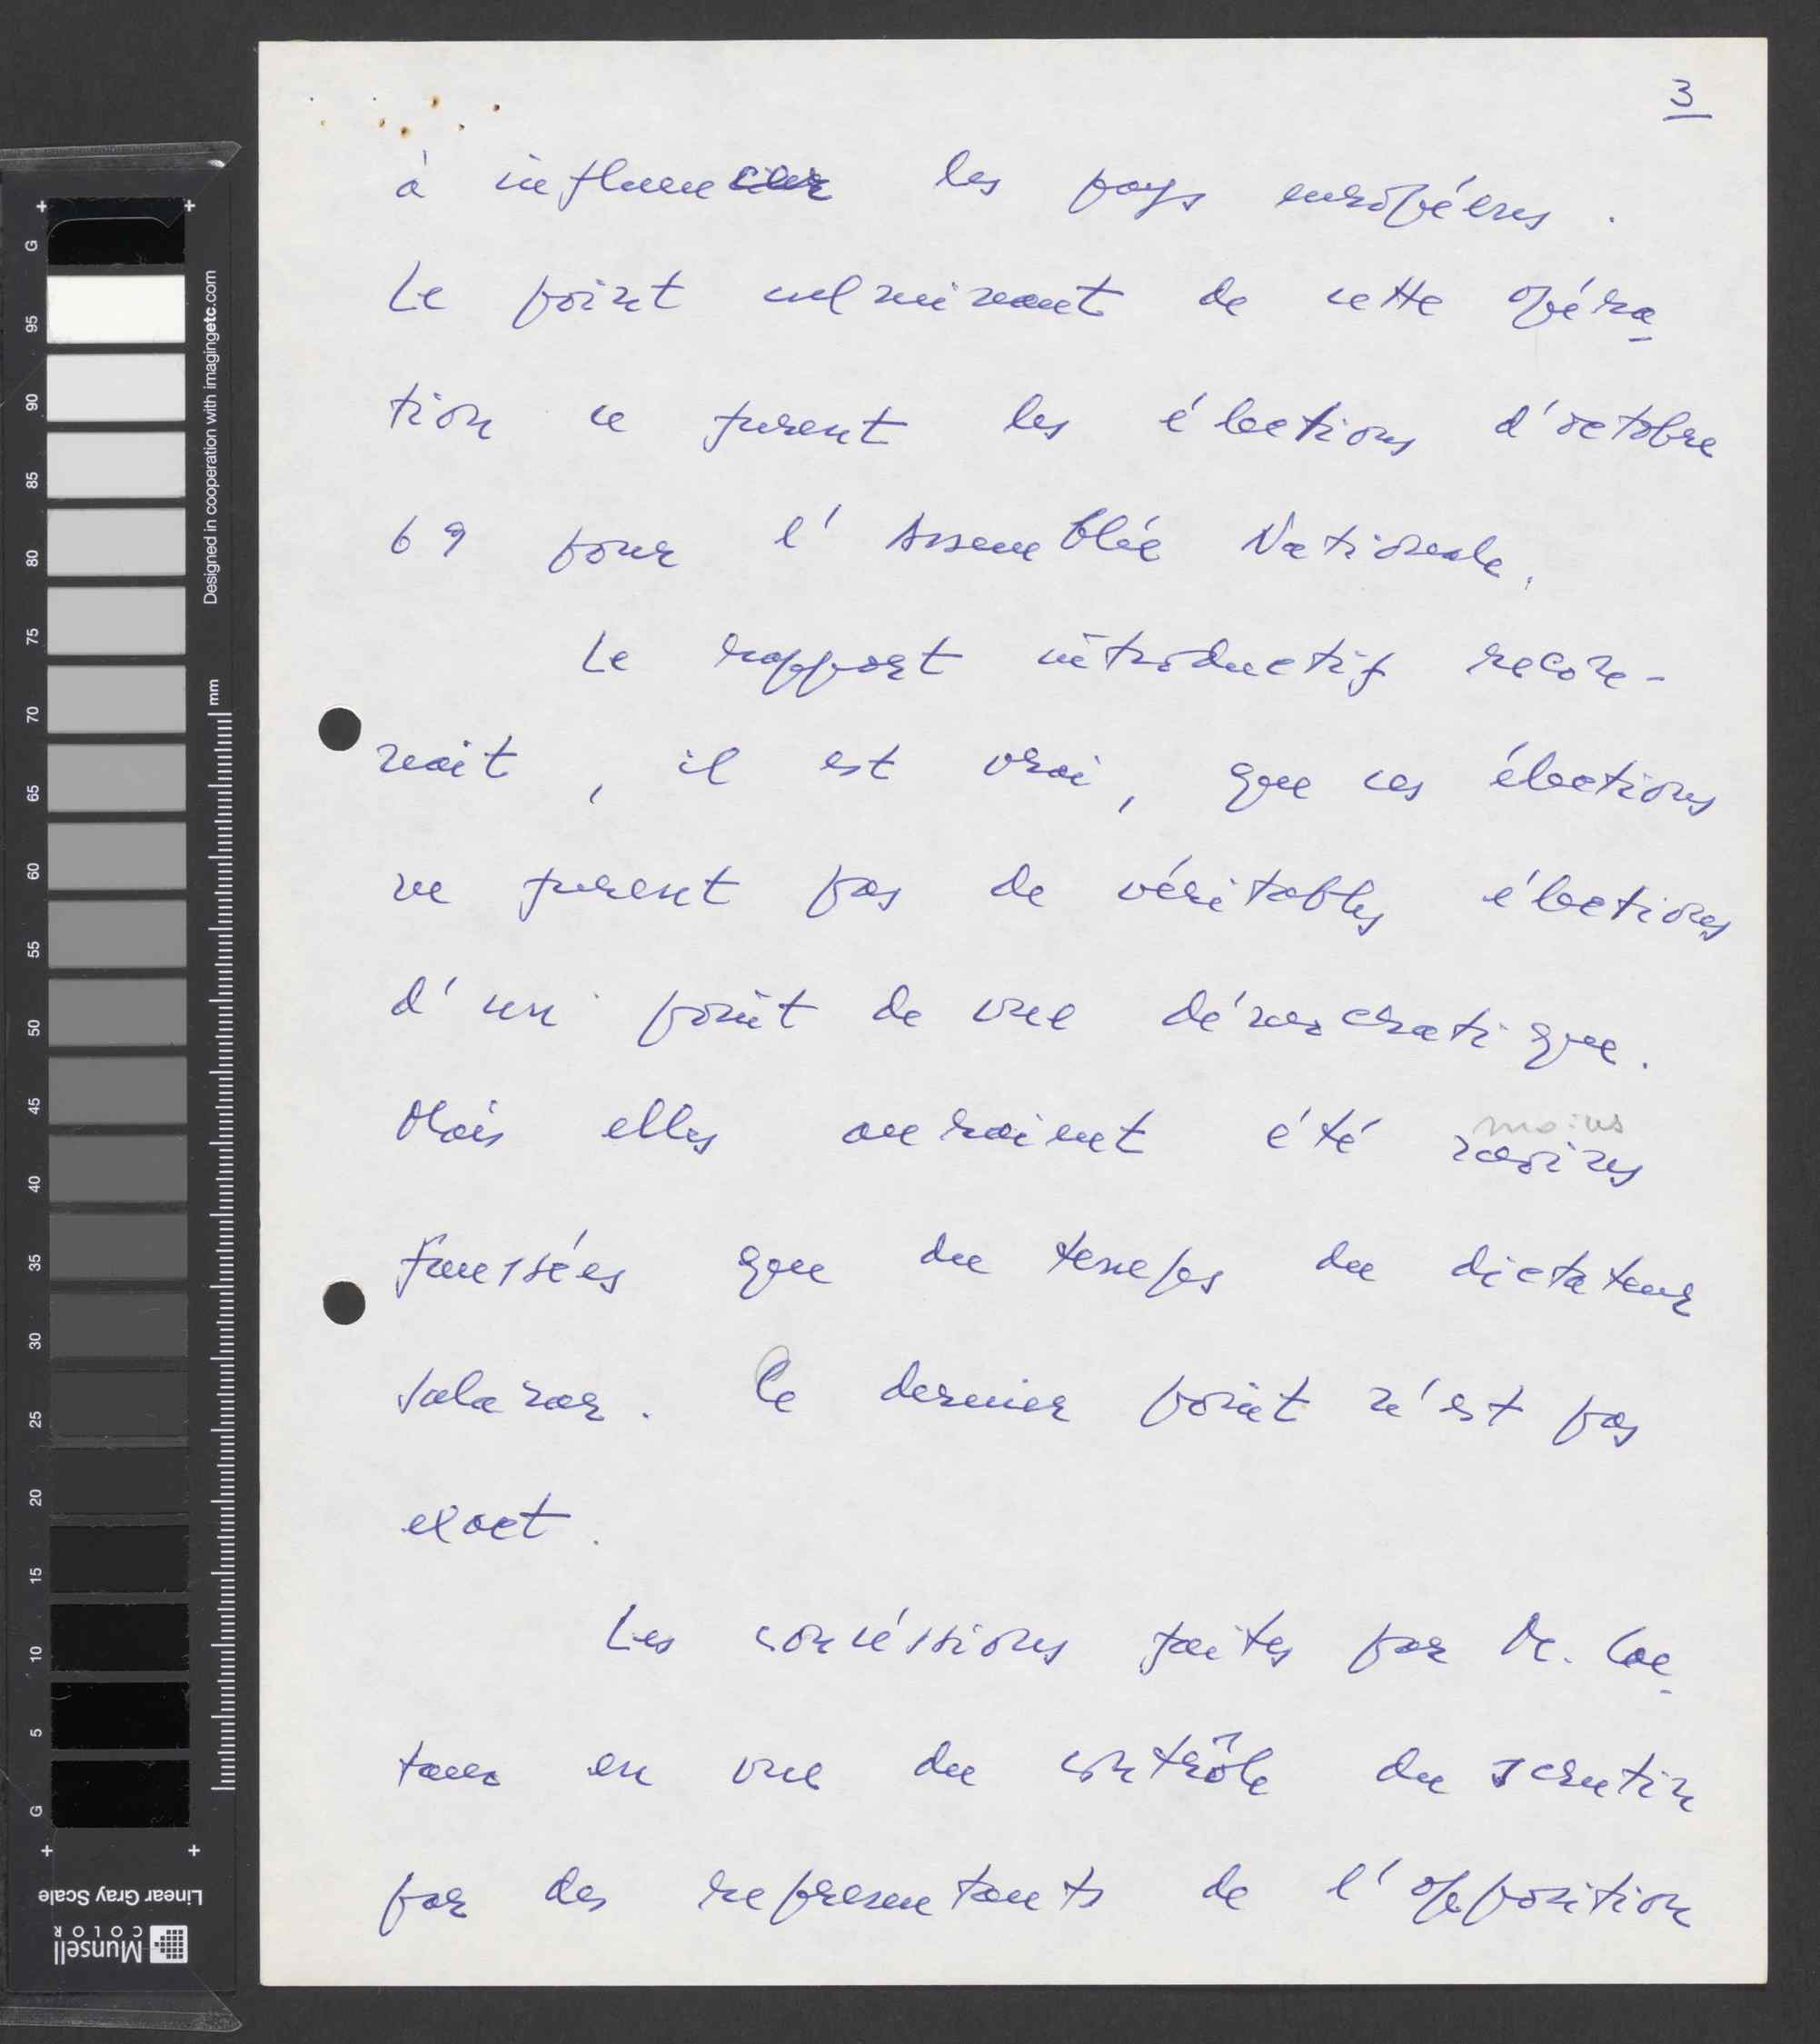 3
à influencer les pays européens.
Le point culminant de cette opéra-
tion ce furent les élections d'octobre
69 pour l'Assemblée Nationale.
Le rapport introductif recon-
nait, il est vrai, que ces élections
ne furent pas de véritables élections
d'un point de vue démocratique.
moins
Mais elles auraient été moins
faussées que du temps du dictateur
Salazar. Ce dernier point n'est pas
exact.
Les concéssions faites par M. Cae-
tano en vue du contrôle du scrutin
par des representants de l'opposition
G
95
90
85
80
75
70
65
60
55
50
45
40
35
30
25
20
15
10
5
G
mm
Designed in cooperation with imagingetc.com
Linear Gray Scale
Munsell
COLOR